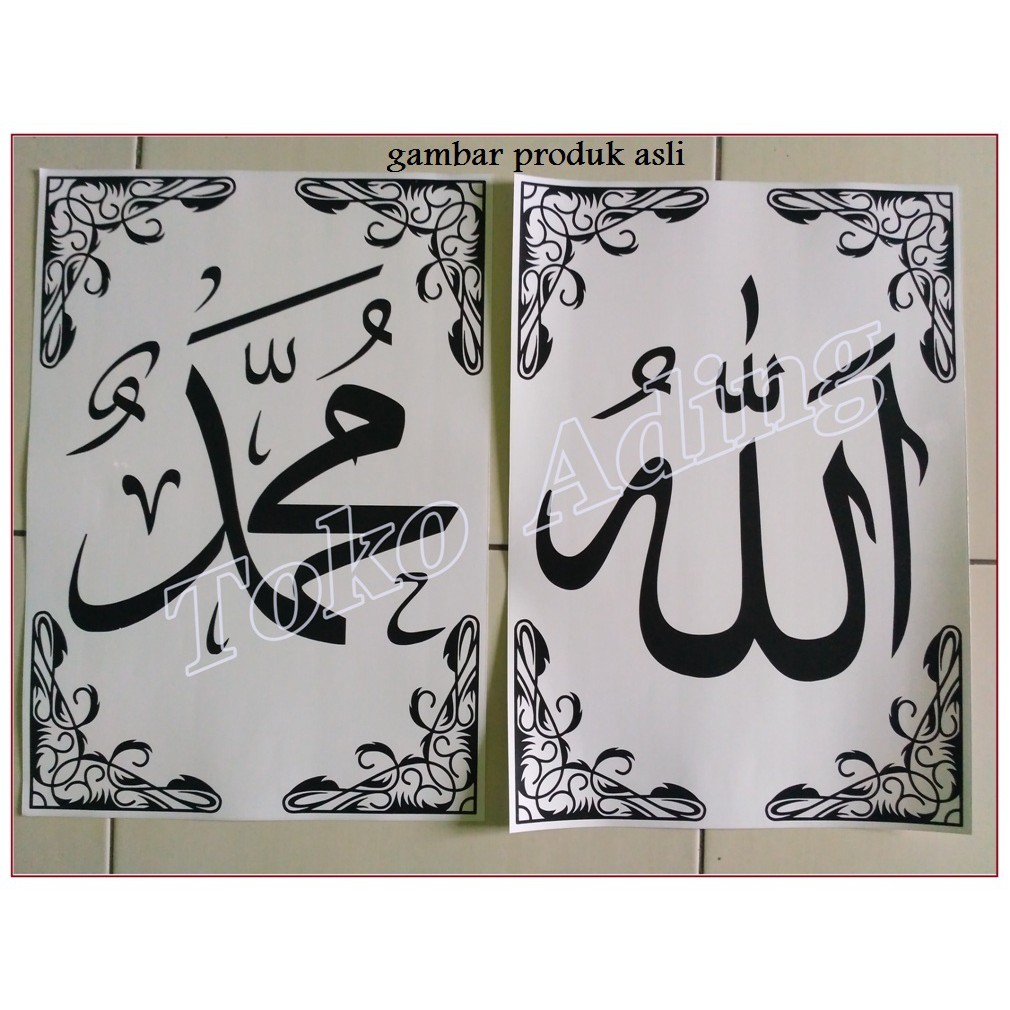 gambar produk asli
مُحَمَّدٌ
اللّٰهُ
Toko Ading